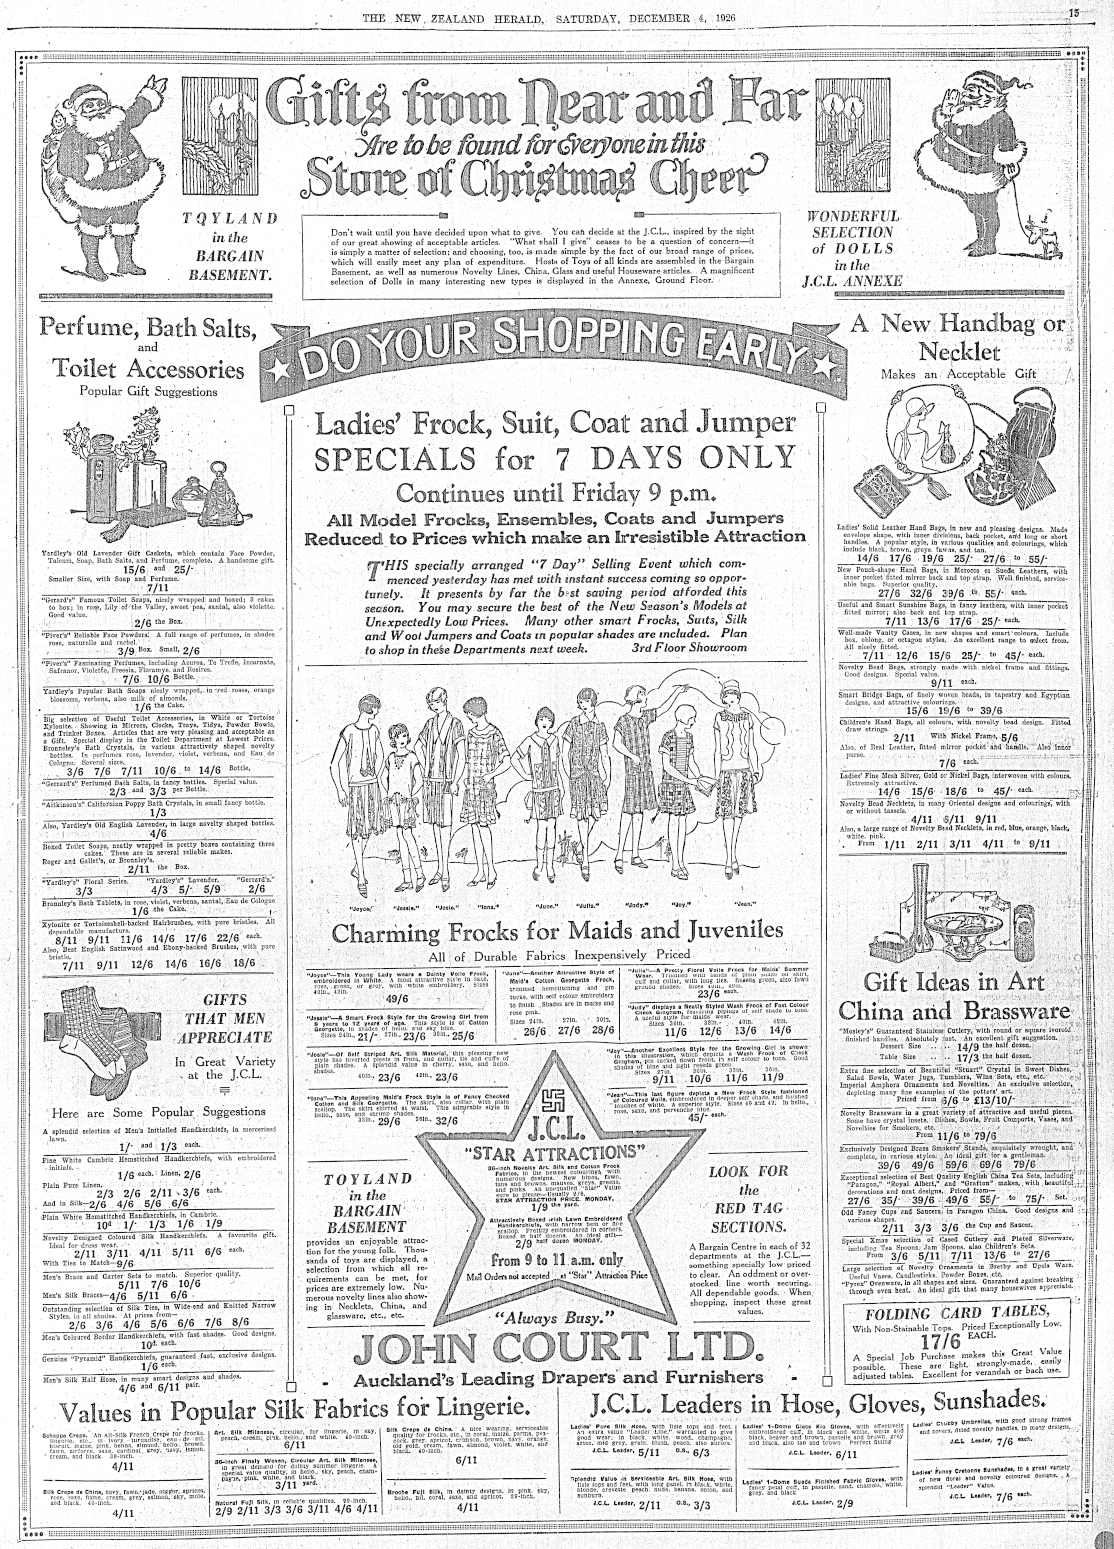 THE NEW ZEALAND HERALD, SATURDAY, DECEMBER 4, 1926
15
Gifts from Near and Far
Are to be found for Everyone in this
Store of Christmas Cheer
TOYLAND
in the
BARGAIN
BASEMENT.
Don't wait until you have decided upon what to give. You can decide at the J.C.L., inspired by the sight
of our great showing of acceptable articles. "What shall I give" ceases to be a question of concern—it
is simply a matter of selection; and choosing, too, is made simple by the fact of our broad range of prices,
which will easily meet any plan of expenditure. Hosts of Toys of all kinds are assembled in the Bargain
Basement, as well as numerous Novelty Lines, China, Glass and useful Houseware articles. A magnificent
selection of Dolls in many interesting new types is displayed in the Annexe, Ground Floor.
WONDERFUL
SELECTION
of DOLLS
in the
J.C.L. ANNEXE
DO YOUR SHOPPING EARLY
Perfume, Bath Salts,
and
Toilet Accessories
Popular Gift Suggestions
Yardley's Old Lavender Gift Caskets, which contain Face Powder,
Talcum, Soap, Bath Salts, and Perfume, complete. A handsome gift.
15/6 and 25/-
Smaller Size, with Soap and Perfume.
7/11
"Gerard's" Famous Toilet Soaps, nicely wrapped and boxed; 3 cakes
to box; in rose, Lily of the Valley, sweet pea, santal, also violette.
Good value.
2/6 the Box.
"Piver's" Reliable Face Powders. A full range of perfumes, in shades
rose, naturelle and rachel.
3/9 Box. Small, 2/6
"Piver's" Fascinating Perfumes, including Azurea, Te Trefle, Incarnate,
Safranor, Violette, Freesia, Floramye, and Rosires.
7/6 10/6 Bottle.
Yardley's Popular Bath Soaps nicely wrapped, in red roses, orange
blossoms, verbena, also milk of almonds.
1/6 the Cake.
Big selection of Useful Toilet Accessories, in White or Tortoise
Xylonite. Showing in Mirrors, Clocks, Trays, Tidys, Powder Bowls,
and Trinket Boxes. Articles that are very pleasing and acceptable as
a Gift. Special display in the Toilet Department at Lowest Prices.
Bronnley's Bath Crystals, in various attractively shaped novelty
bottles. In perfumes rose, lavender, violet, verbena, and Eau de
Cologne. Several sizes.
3/6 7/6 7/11 10/6 to 14/6 Bottle.
"Gerrard's" Perfumed Bath Salts, in fancy bottles. Special value.
2/3 and 3/3 per Bottle.
"Aitkinson's" Californian Poppy Bath Crystals, in small fancy bottle.
1/3
Also, Yardley's Old English Lavender, in large novelty shaped bottles.
4/6
Boxed Toilet Soaps, neatly wrapped in pretty boxes containing three
cakes. These are in several reliable makes.
Roger and Gallet's, or Bronnley's.
2/11 the Box.
"Yardley's" Floral Series. "Yardley's" Lavender. "Gerrard's."
3/3 4/3 5/- 5/9 2/6
Bronnley's Bath Tablets, in rose, violet, verbena, santal, Eau de Cologne
1/6 the Cake.
Xylonite or Tortoiseshell-backed Hairbrushes, with pure bristles. All
dependable manufacture.
8/11 9/11 11/6 14/6 17/6 22/6 each.
Also, Best English Satinwood and Ebony-backed Brushes, with pure
bristle.
7/11 9/11 12/6 14/6 16/6 18/6
GIFTS
THAT MEN
APPRECIATE
In Great Variety
at the J.C.L.
Here are Some Popular Suggestions
A splendid selection of Men's Initialled Handkerchiefs, in mercerised
lawn.
1/- and 1/3 each.
Fine White Cambric Hemstitched Handkerchiefs, with embroidered
initials.
1/6 each. Linen, 2/6
Plain Pure Linen.
2/3 2/6 2/11 3/6 each.
And in Silk—2/6 4/6 5/6 6/6
Plain White Hemstitched Handkerchiefs, in Cambric.
10d 1/- 1/3 1/6 1/9
Novelty Designed Coloured Silk Handkerchiefs. A favourite gift.
Ideal for dress wear.
2/11 3/11 4/11 5/11 6/6 each.
With Ties to Match—9/6
Men's Brace and Garter Sets to match. Superior quality.
5/11 7/6 10/6
Men's Silk Braces—4/6 5/11 6/6
Outstanding selection of Silk Ties, in Wide-end and Knitted Narrow
Styles, in all shades. At prices from—
2/6 3/6 4/6 5/6 6/6 7/6 8/6
Men's Coloured Border Handkerchiefs, with fast shades. Good designs.
10d. each.
Genuine "Pyramid" Handkerchiefs, guaranteed fast, exclusive designs.
1/6 each.
Men's Silk Half Hose, in many smart designs and shades.
4/6 and 6/11 pair.
Ladies' Frock, Suit, Coat and Jumper
SPECIALS for 7 DAYS ONLY
Continues until Friday 9 p.m.
All Model Frocks, Ensembles, Coats and Jumpers
Reduced to Prices which make an Irresistible Attraction
THIS specially arranged "7 Day" Selling Event which com-
menced yesterday has met with instant success coming so oppor-
tunely. It presents by far the best saving period afforded this
season. You may secure the best of the New Season's Models at
Unexpectedly Low Prices. Many other smart Frocks, Suits, Silk
and Wool Jumpers and Coats in popular shades are included. Plan
to shop in these Departments next week. 3rd Floor Showroom
"Joyce" "Jessie." "Josie." "Iona." "June." "Julia." "Judy." "Joy." "Jean."
Charming Frocks for Maids and Juveniles
All of Durable Fabrics Inexpensively Priced
"Joyce"—This Young Lady wears a Dainty Voile Frock,
embroidered in White. A most attractive style in saxe,
rose, green, or grey, with white embroidery. Sizes
40in., 42in.
49/6
"Jessie"—A Smart Frock Style for the Growing Girl from
8 years to 12 years of age. This style is of Cotton
Georgette, in shades of helio. and sky blue.
Sizes 24in. 21/- 27in. 23/6 30in. 25/6
"June"—Another Attractive Style of
Maid's Cotton Georgette Frock,
trimmed hemstitching and pin
tucks, with self colour embroidery
to finish. Shades are in maize and
rose pink.
Sizes 24in. 27in. 30in.
26/6 27/6 28/6
"Julia"—A Pretty Floral Voile Frock for Maids' Summer
Wear. Trimmed with bands of plain shade on skirt,
cuff and collar, with long ties. Reseda green, also fawn
ground shades. Sizes 40in., 42in.
23/6 each.
"Judy" displays a Neatly Styled Wash Frock of Fast Colour
Check Gingham, featuring pipings of self shade to tone.
A useful style for maids' wear.
Sizes 36in. 38in. 40in. 42in.
11/6 12/6 13/6 14/6
"Josie"—Of Self Striped Art. Silk Material, this pleasing new
style has inverted pleats in front, and collar, tie and cuffs of
plain shades. A splendid value in cherry, saxe, and helio.
shades.
40in. 23/6 42in. 23/6
"Iona"—This Appealing Maid's Frock Style is of Fancy Checked
Cotton and Silk Georgette. The skirt, also collar, with plain
scallop. The skirt shirred at waist. This admirable style in
helio, saxe, and shrimp shades.
33in. 29/6 36in. 32/6
"Joy"—Another Excellent Style for the Growing Girl is shown
in this illustration, which depicts a Wash Frock of Check
Gingham, pin tucked down front, in self colour to tone. Good
shades of blue and light reseda green.
Sizes 27in. 30in. 33in. 36in.
9/11 10/6 11/6 11/9
"Jean"—This last figure depicts a New Frock Style fashioned
of Coloured Voile, embroidered in deeper self shade, and finished
touches of White. A superior style. Sizes 40 and 42. In helio,
rose, saxe, and pervenche blue.
45/- each.
J.C.L.
"STAR ATTRACTIONS"
36-inch Novelty Art. Silk and Cotton Frock
Fabrics, in the newest colourings, with
numerous designs. New blues, fawn,
tans and browns, mauves, greys, greens,
and pinks. An unequalled "Star" Value
sure to please—Usually 2/6.
STAR ATTRACTION PRICE, MONDAY,
1/9 the yard.
Attractively Boxed Irish Lawn Embroidered
Handkerchiefs, with narrow hem or fine
scallop. Prettily embroidered in corners.
Boxed in half dozens. An ideal gift—
2/9 half dozen MONDAY.
From 9 to 11 a.m. only
Mail Orders not accepted at "Star" Attraction Price
TOYLAND
in the
BARGAIN
BASEMENT
provides an enjoyable attrac-
tion for the young folk. Thou-
sands of toys are displayed, a
selection from which all re-
quirements can be met, for
prices are extremely low. Nu-
merous novelty lines also show-
ing in Necklets, China, and
glassware, etc., etc.
LOOK FOR
the
RED TAG
SECTIONS.
A Bargain Centre in each of 32
departments at the J.C.L.—
something specially low priced
to clear. An oddment or over-
stocked line worth securing.
All dependable goods. When
shopping, inspect these great
values.
"Always Busy."
JOHN COURT LTD.
Auckland's Leading Drapers and Furnishers
A New Handbag or
Necklet
Makes an Acceptable Gift
Ladies' Solid Leather Hand Bags, in new and pleasing designs. Made
envelope shape, with inner divisions, back pocket, and long or short
handles. A popular style, in various qualities and colourings, which
include black, brown, greys, fawns, and tan.
14/6 17/6 19/6 25/- 27/6 to 55/-
New Pouch-shape Hand Bags, in Morocco or Suede Leathers, with
inner pocket fitted mirror back and top strap. Well finished, service-
able bags. Superior quality.
27/6 32/6 39/6 to 55/- each.
Useful and Smart Sunshine Bags, in fancy leathers, with inner pocket
fitted mirror; also back and top strap.
7/11 13/6 17/6 25/- each.
Well-made Vanity Cases, in new shapes and smart colours. Include
box, oblong, or octagon styles. An excellent range to select from.
All nicely fitted.
7/11 12/6 15/6 25/- to 45/- each.
Novelty Bead Bags, strongly made with nickel frame and fittings.
Good designs. Special value.
9/11 each.
Smart Bridge Bags, of finely woven beads, in tapestry and Egyptian
designs, and attractive colourings.
15/6 19/6 to 39/6
Children's Hand Bags, all colours, with novelty bead design. Fitted
draw strings.
2/11 With Nickel Frame, 5/6
Also, of Real Leather, fitted mirror pocket and handle. Also inner
purse.
7/6 each.
Ladies' Fine Mesh Silver, Gold or Nickel Bags, interwoven with colours.
Extremely attractive.
14/6 15/6 18/6 to 45/- each.
Novelty Bead Necklets, in many Oriental designs and colourings, with
or without tassels.
4/11 6/11 9/11
Also, a large range of Novelty Bead Necklets, in red, blue, orange, black,
white, pink.
From 1/11 2/11 3/11 4/11 to 9/11
Gift Ideas in Art
China and Brassware
"Mosley's" Guaranteed Stainless Cutlery, with round or square ivoroid
finished handles. Absolutely fast. An excellent gift suggestion.
Dessert Size .. .. 14/9 the half dozen.
Table Size .. .. 17/3 the half dozen.
Extra fine selection of Beautiful "Stuart" Crystal in Sweet Dishes,
Salad Bowls, Water Jugs, Tumblers, Wine Sets, etc., etc.
Imperial Amphora Ornaments and Novelties. An exclusive selection,
depicting many fine examples of the potters' art.
Priced from 6/6 to £13/10/-
Novelty Brassware in a great variety of attractive and useful pieces.
Some have crystal insets. Dishes, Bowls, Fruit Comports, Vases, and
Novelties for Smokers, etc.
From 11/6 to 79/6
Exclusively Designed Brass Smokers' Stands, exquisitely wrought, and
complete, in various styles. An ideal gift for a gentleman.
39/6 49/6 59/6 69/6 79/6
Exceptional selection of Best Quality English China Tea Sets, including
"Paragon," "Royal Albert," and "Grafton" makes, with beautiful
decorations and neat designs. Priced from—
27/6 35/- 39/6 49/6 55/- to 75/- Set.
Old Fancy Cups and Saucers, in Paragon China. Good designs and
various shapes.
2/11 3/3 3/6 the Cup and Saucer.
Special Xmas selection of Cased Cutlery and Plated Silverware,
including Tea Spoons, Jam Spoons, also Children's Sets.
From 3/6 5/11 7/11 13/6 to 27/6
Large selection of Novelty Ornaments in Bretby and Upuls Ware.
Useful Vases, Candlesticks, Powder Boxes, etc.
"Pyrex" Ovenware, in all shapes and sizes. Guaranteed against breaking
through oven heat. An ideal gift that many housewives appreciate.
FOLDING CARD TABLES,
With Non-Stainable Tops. Priced Exceptionally Low.
17/6 EACH.
A Special Job Purchase makes this Great Value
possible. These are light, strongly-made, easily
adjusted tables. Excellent for verandah or bach use.
Values in Popular Silk Fabrics for Lingerie.
Schappe Crepe. An All-Silk French Crepe for frocks,
lingerie, etc., in ivory, turquoise, eau de nil,
biscuit, maize, pink, henna, almond, helio, brown,
fawn, airforce, saxe, cardinal, grey, navy, lemon,
cream, and black. 38-inch.
4/11
Silk Crepe de Chine, navy, fawn, jade, nigger, apricot,
rose, saxe, flame, cream, grey, salmon, sky, mole,
and black. 40-inch.
4/11
Art. Silk Milanese, circular, for lingerie, in sky,
peach, cream, pink, helio, and white. 40-inch.
6/11
36-inch Finely Woven, Circular Art. Silk Milanese,
in great demand for dainty summer lingerie. A
special value quality, in helio, sky, peach, cham-
pagne, pink, white, and black.
3/11 yard.
Natural Fuji Silk, in reliable qualities. 29-inch.
2/9 2/11 3/3 3/6 3/11 4/6 4/11
Silk Crepe de Chine. A nice wearing, serviceable
quality for frocks, etc., in coral, maize, parma, pea-
cock, grey, apricot, crimson, brown, navy, orange,
old gold, cream, fawn, almond, violet, white, and
black. 40-inch.
6/11
Broche Fuji Silk, in dainty designs, in pink, sky,
helio, nil, coral, saxe, and apricot. 29-inch.
4/11
J.C.L. Leaders in Hose, Gloves, Sunshades.
Ladies' Pure Silk Hose, with lisle tops and feet.
An extra value "Leader Line," warranted to give
good wear; in black, white, wood, champagne,
aztec, mid grey, grain, blush, peach, also aurora.
J.C.L. Leader, 5/11 O.S., 6/3
Splendid Value in Serviceable Art. Silk Hose, with
lisle tops and feet, with long panel, in black, white,
blonde, crevette, peach, nude, banana, onion, and
sunburn.
J.C.L. Leader, 2/11 O.S., 3/3
Ladies' 1-Dome Glace Kid Gloves, with effectively
embroidered cuff, in black and white, white and
black, beaver and brown, pastelle and brown, grey
and black, also tan and brown. Perfect fitting
J.C.L. Leader, 6/11
Ladies' 1-Dome Suede Finished Fabric Gloves, with
fancy petal cuff, in pastelle, sand, chamois, white,
grey, and black
J.C.L. Leader, 2/9
Ladies' Chubby Umbrellas, with good strong frames
and covers, fitted novelty handles, in many designs.
J.C.L. Leader, 7/6 each.
Ladies' Fancy Cretonne Sunshades, in a great variety
of new floral and novelty coloured designs. A
splendid "Leader" Value.
J.C.L. Leader, 7/6 each.